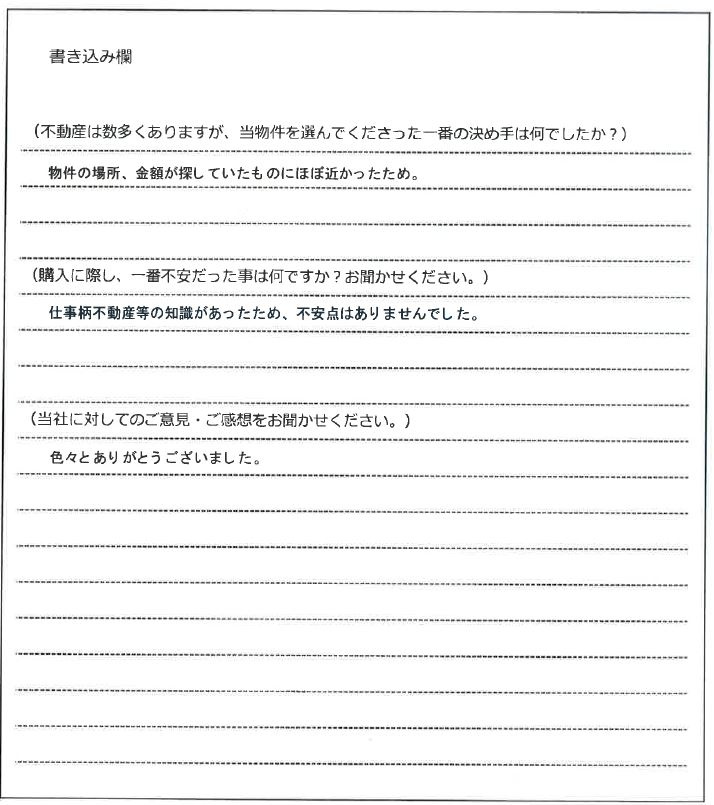 書き込み欄
（不動産は数多くありますが、当物件を選んでくださった一番の決め手は何でしたか？）
物件の場所、金額が探していたものにほぼ近かったため。
（購入に際し、一番不安だった事は何ですか？お聞かせください。）
仕事柄不動産等の知識があったため、不安点はありませんでした。
（当社に対してのご意見・ご感想をお聞かせください。）
色々とありがとうございました。